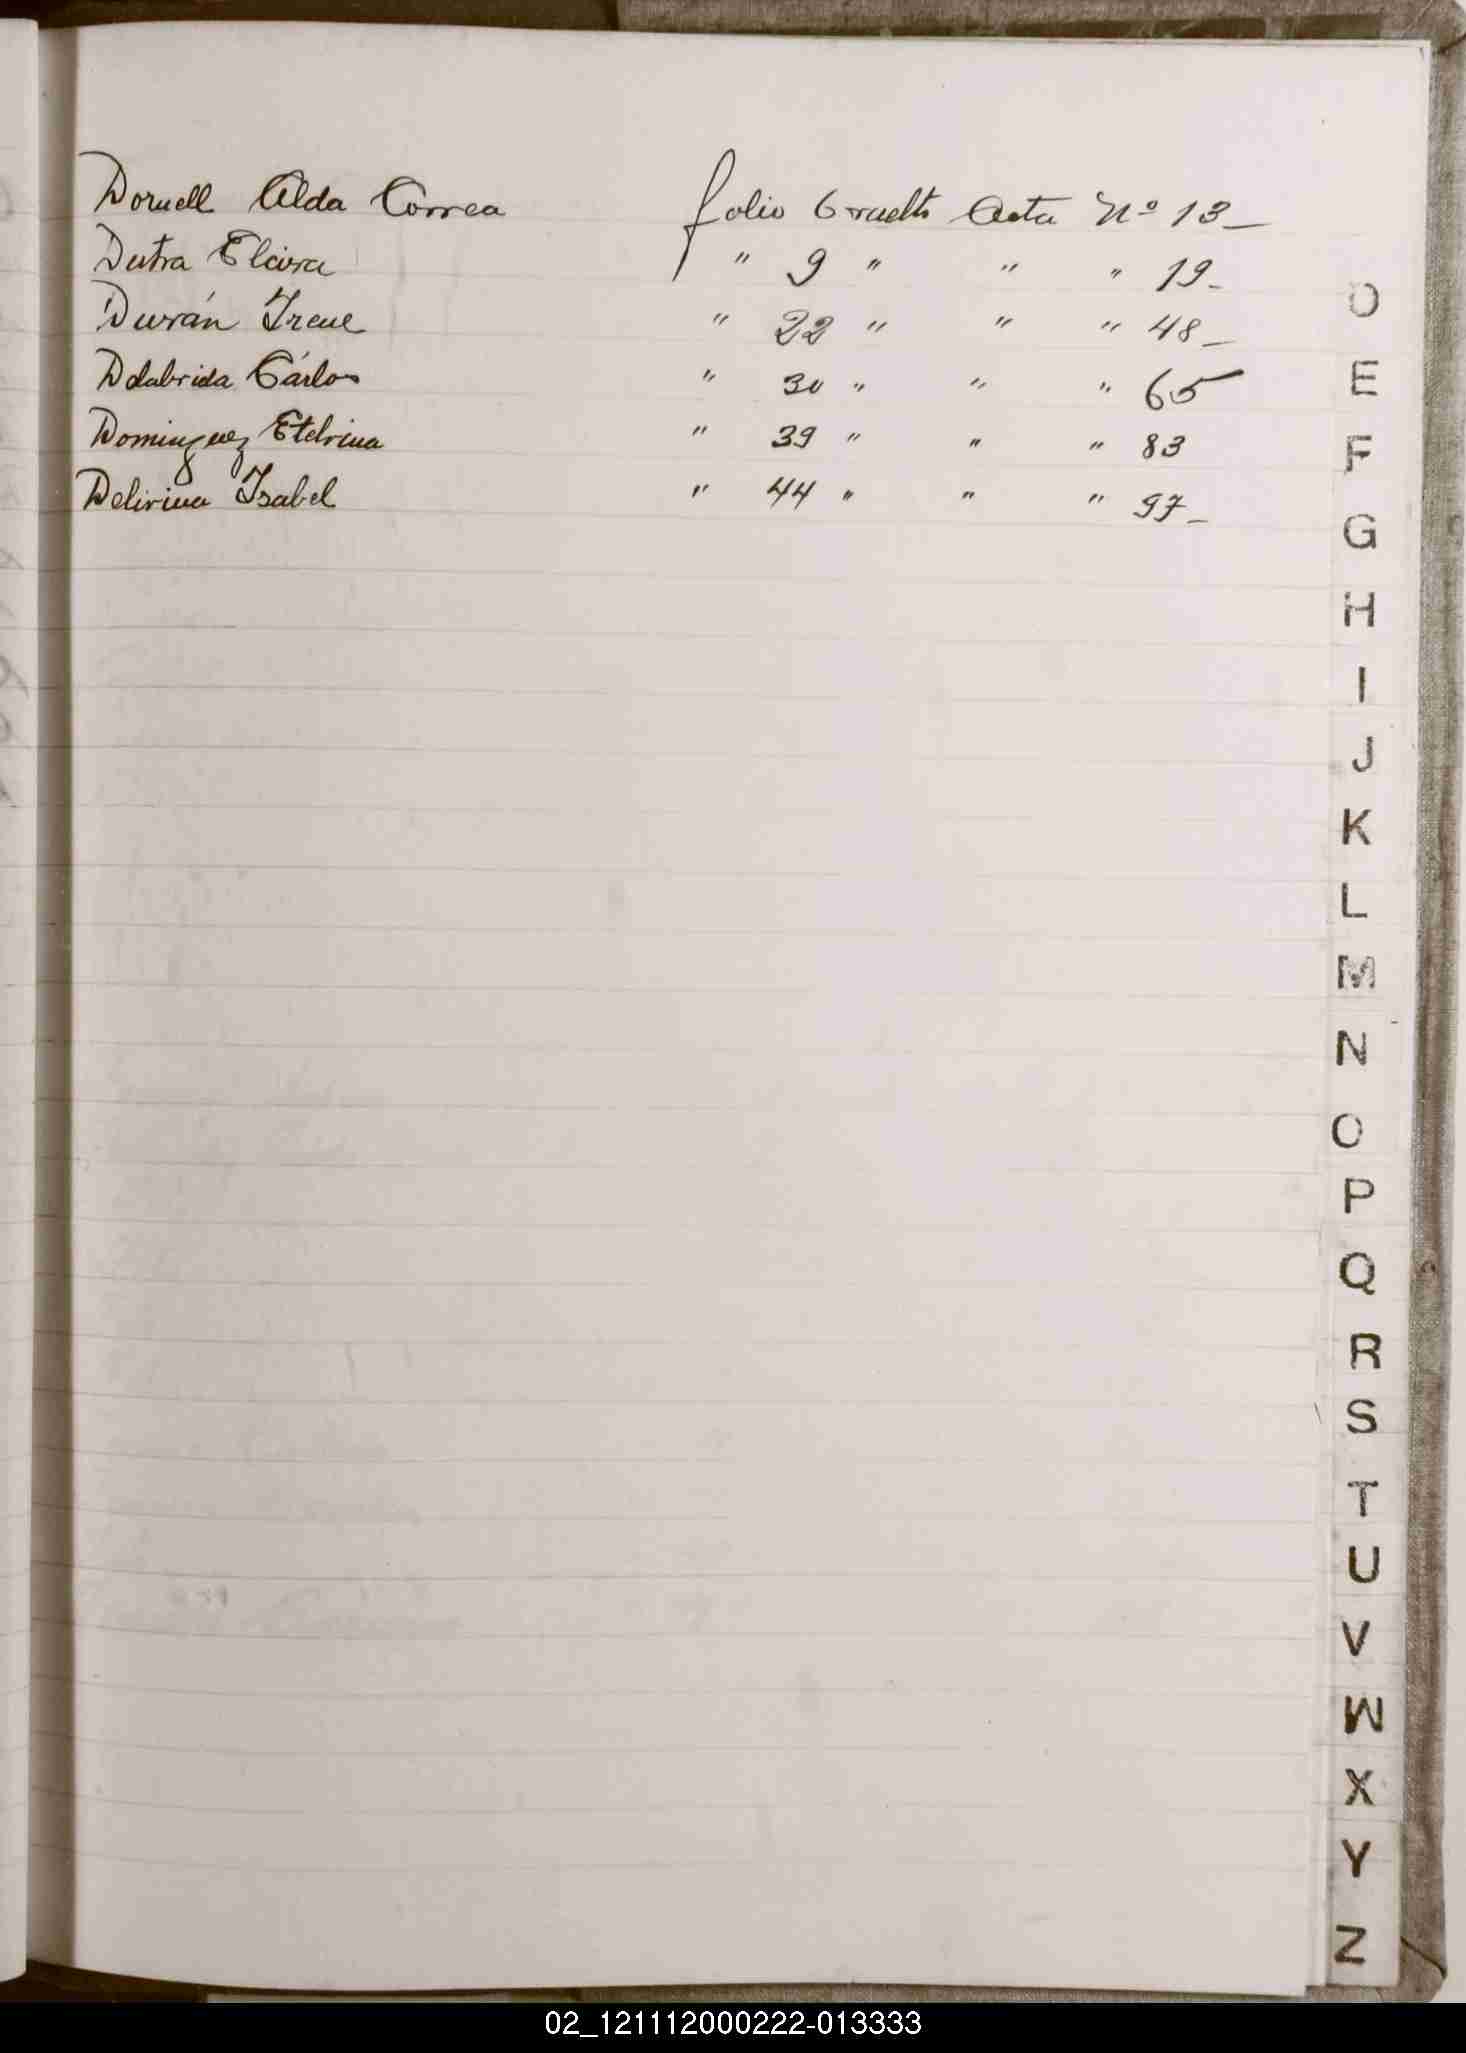 Dornell Alda Correa folio 6 vuelto Acta Nº 13_
Dutra Elvira " 9 " " " 19_
Durán Irene " 22 " " " 48_
Ddabrida Cárlos " 30 " " " 65
Dominguez Etelvina " 39 " " " 83
Delivina Isabel " 44 " " " 97_
D
E
F
G
H
I
J
K
L
M
N
O
P
Q
R
S
T
U
V
W
X
Y
Z
02_121112000222-013333